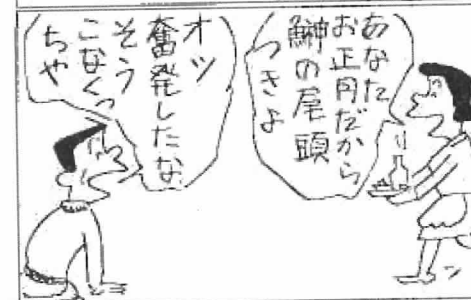 あなた
お正月だから
鰤の尾頭
つきよ
オツ
奮発したな
そう
こなくつ
ちや